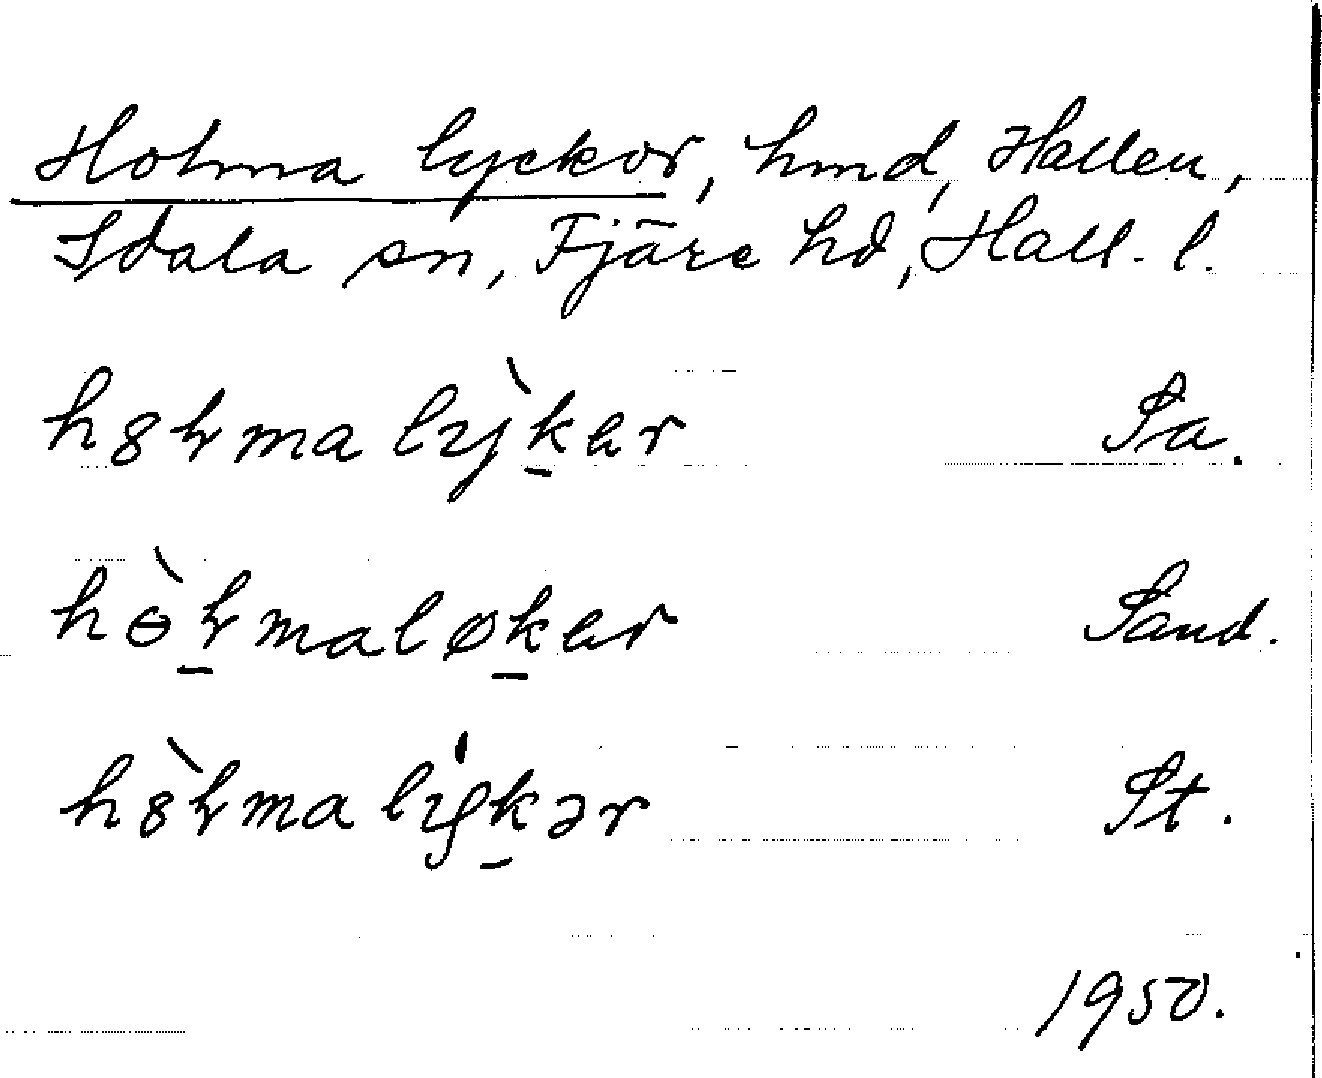 Holma lyckor, hmd, Hallen,
Idala sn, Fjäre hd, Hall. l.
h8ꝉma lỳk̠er Sa.
hɵ̀ꝉ̠maløk̠er Sand.
h8̀ꝉmalẏk̠ər St.
1950.